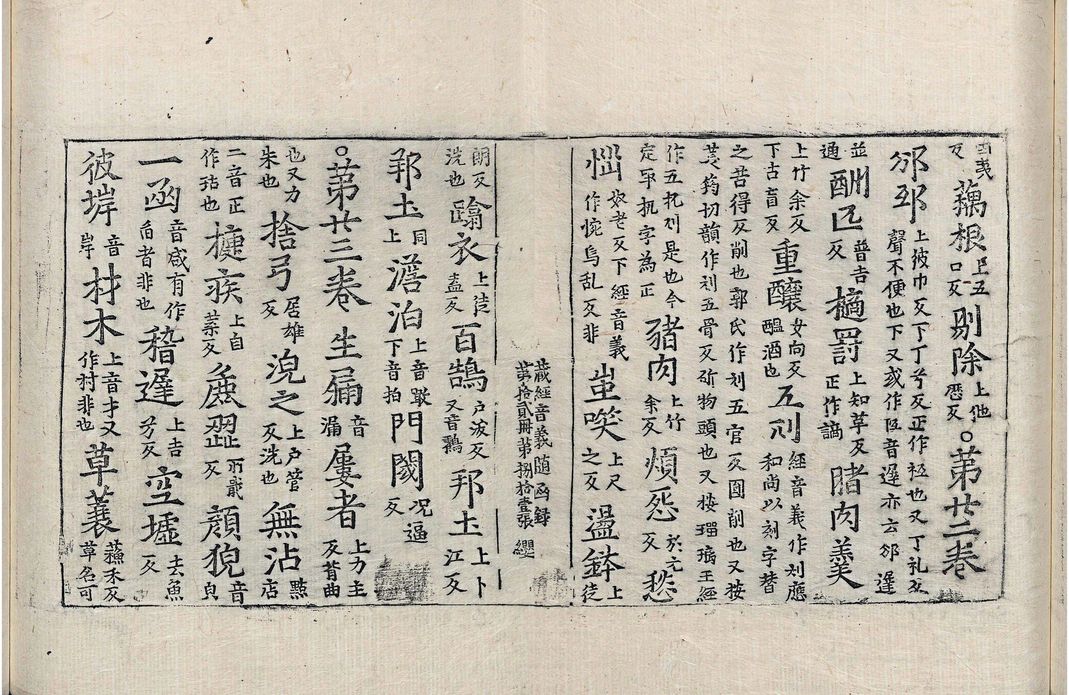 反藕根上五口反剔除上他歷反。第廿二卷
邠邳上彼巾反丁丁兮反正作也又丁礼反聲不便也下又或作音遅亦云邠遅
並通酬匹普吉反擿罰上知革反正作謫腤肉羹
上竹余反下古盲反重釀女向反醖酒也五刖經音義作刈應和尚以刻字替
之苦得反削也郭氏作刓五官反圓削也又按
筠切韻作刖五骨反斫物頭也又按瑠璃王經
作五扤刖是也今定宰扤字為正豬肉上竹余反煩惌於元反愁
惱奴老反下經音義作惋烏乱反非蚩唉上尺之反盪鉢上徒
藏經音義随函録
第拾貳冊第捌拾壹張 纓
朗反洗也衣上徒盍反百鵠户沃反又音鸛邦土上卜江反
邦土同上澹泊上音噉下音拍門閾況逼反
。第廿三卷生漏音漏屢者上力主反背曲
也又力朱也捨弓居雄反浼之上户管反洗也無沾點店
二音正作玷也㨗疾上自葉反麁澀所戢反顔㒵音皃
一函音咸有作臽者非也稽遅上古兮反空墟去魚反
彼垾音岸材木上音才又作村非也草蘘蘓禾反草名可